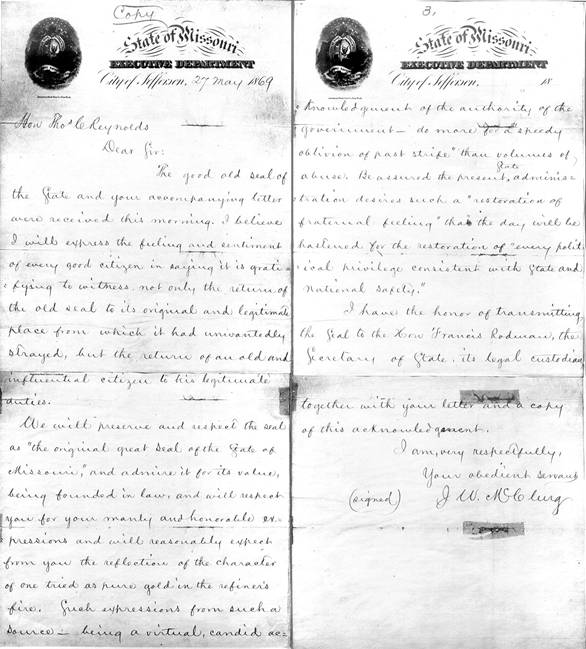 Copy
State of Missouri,
EXECUTIVE DEPARTMENT
City of Jefferson, 27 May 1869
Hon Thos C Reynolds
Dear Sir:
The good old seal of
the State and your accompanying letter
were received this morning. I believe
I will express the feeling and sentiment
of every good citizen in saying it is grati=
=fying to witness not only the return of
the old seal to its original and legitimate
place from which it had unwantedly
strayed, but the return of an old and
influential citizen to his legitimate
duties.
We will preserve and respect the seal
as "the original great seal of the State of
Missouri," and admire it for its value,
being founded in law, and will respect
you for your manly and honorable ex-
pressions and will reasonably expect
from you the reflection of the character
of one tried as pure gold in the refiner's
fire. Such expressions from such a
source — being a virtual, candid ac=
3.
State of Missouri,
EXECUTIVE DEPARTMENT
City of Jefferson, 18
knowledgment of the authority of the
government — do more for a "speedy
oblivion of past strife" than volumes of
abuse. Be assured the present, State adminis=
tration desires such a "restoration of
fraternal feeling" that the day will be
hastened for the restoration of "every polit=
ical privilege consistent with State and
National safety."
I have the honor of transmitting
the Seal to the Hon Francis Rodman, the
Secretary of State, its legal custodian
together with your letter and a copy
of this acknowledgment.
I am, very respectfully,
Your obedient servant
(signed) J. W. McClurg